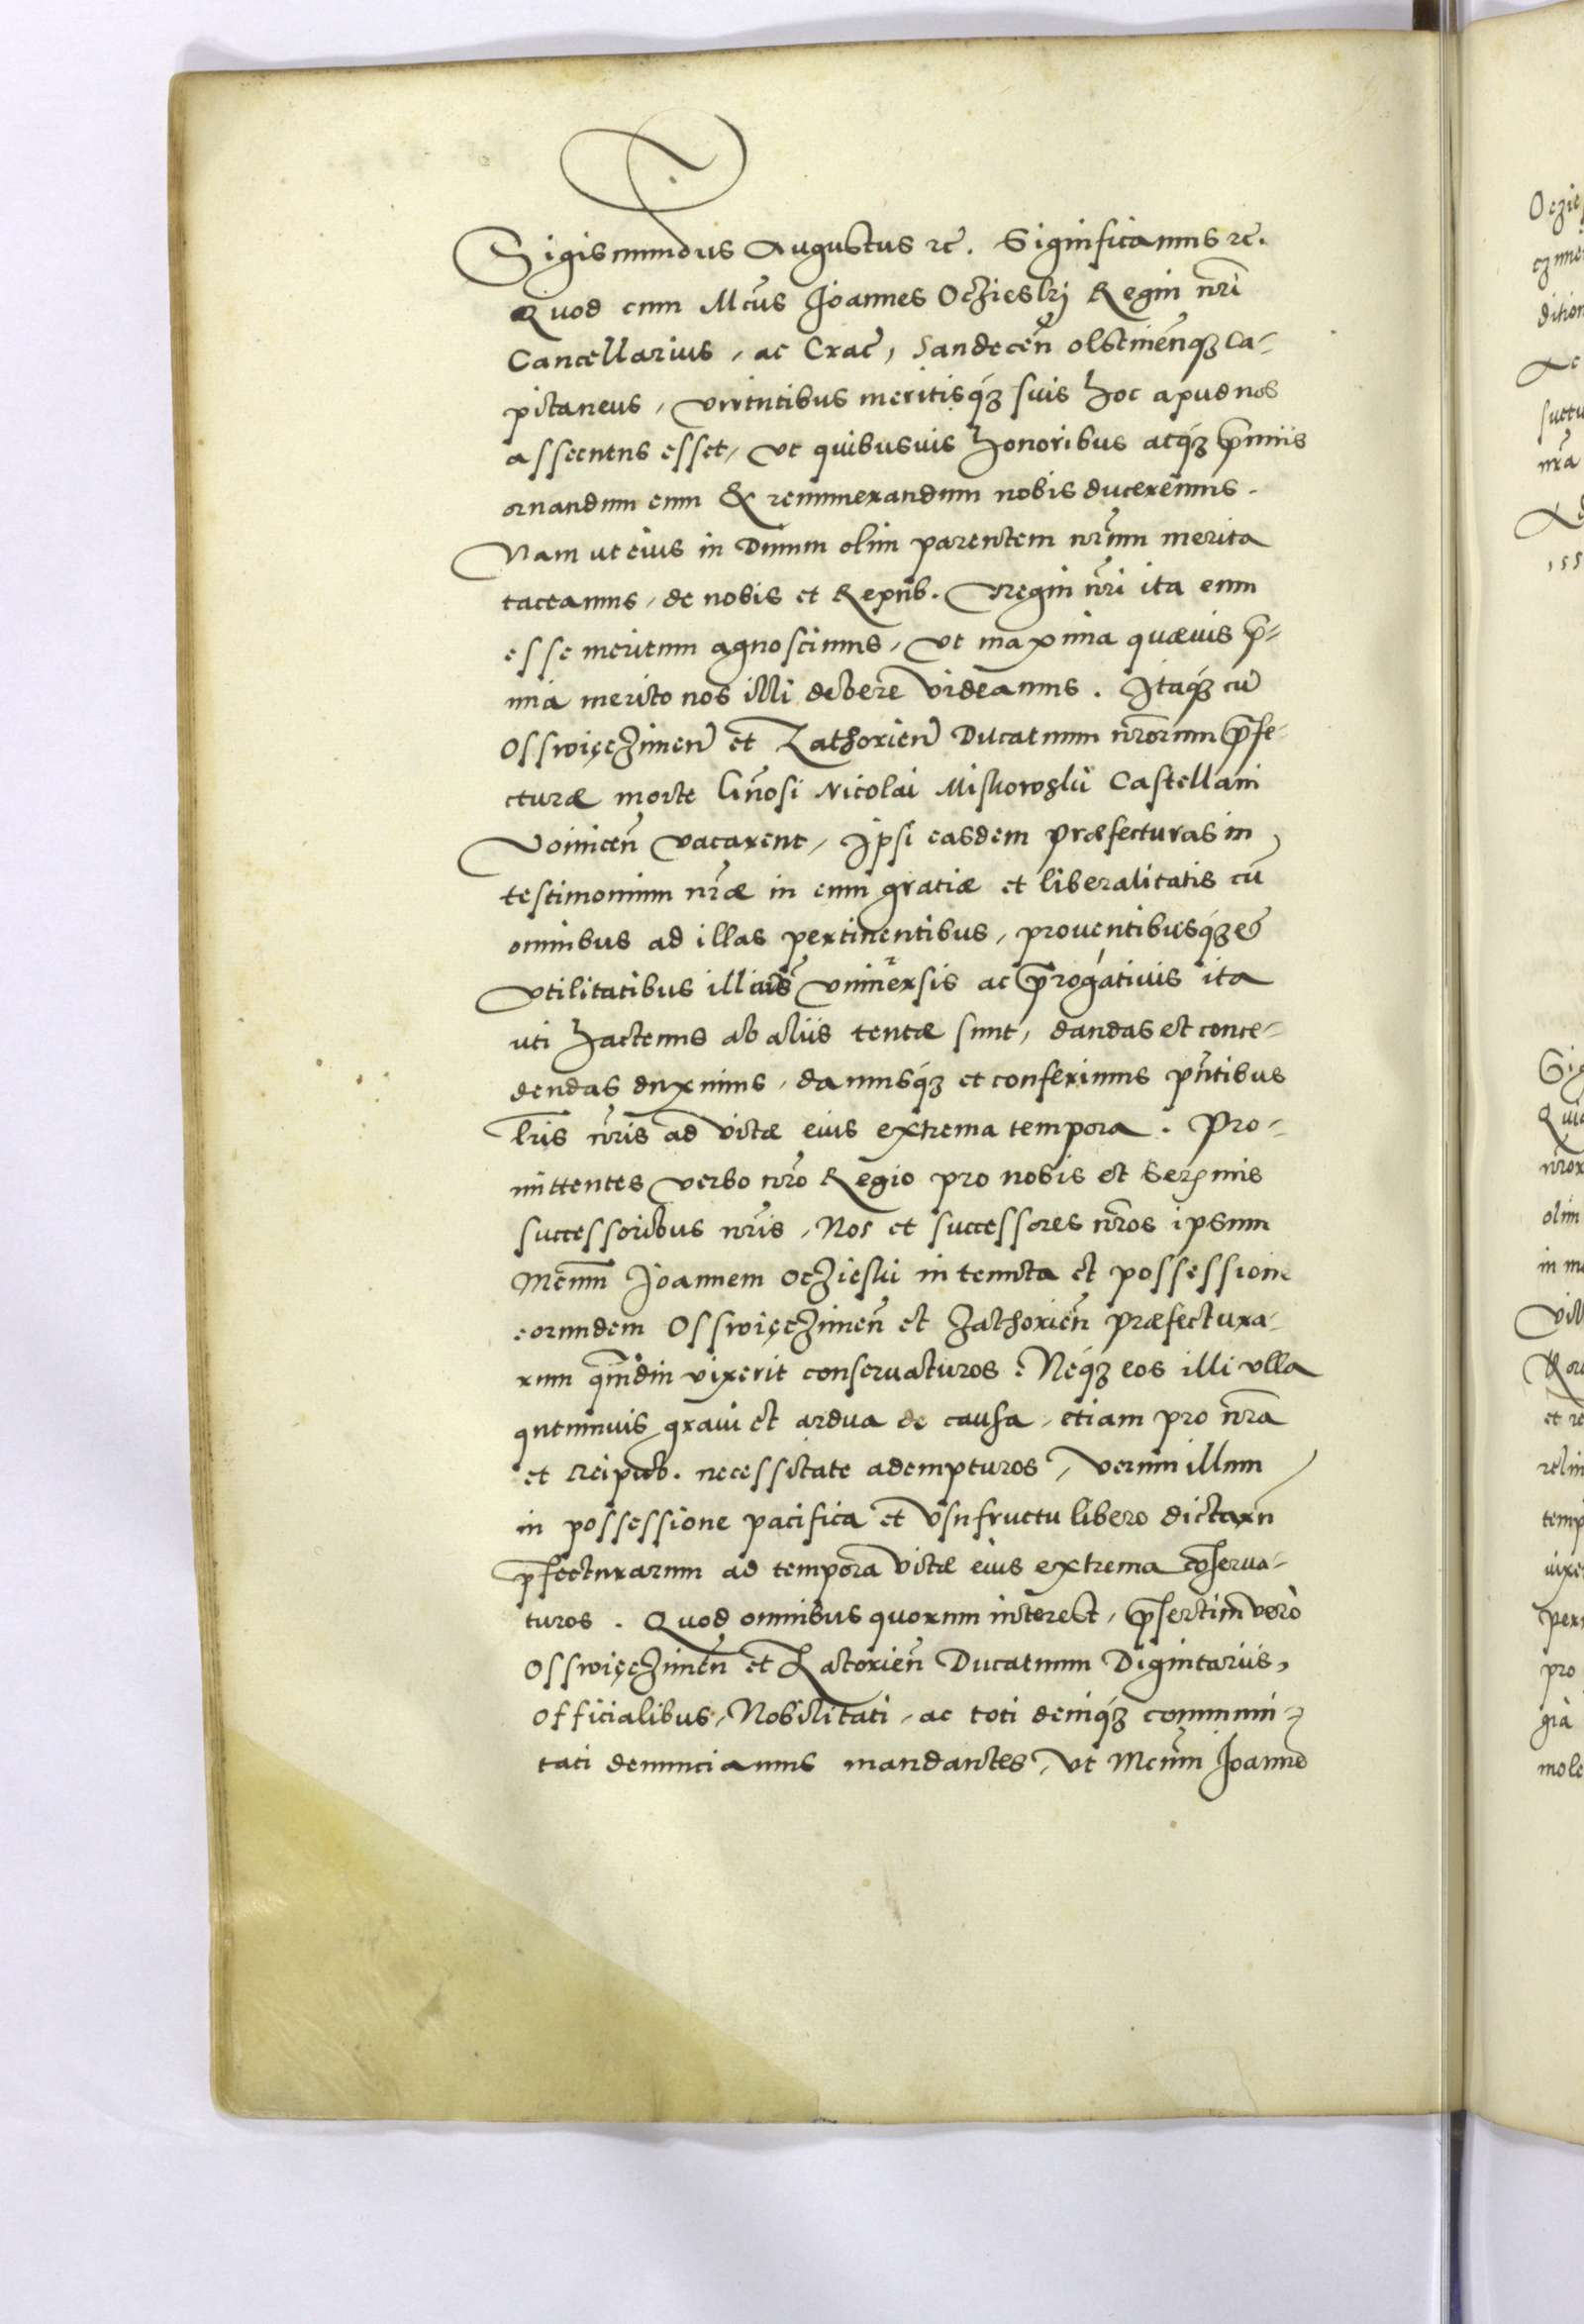 Sigismundus Augustus ꝛc̄. Significamus ꝛc̄.
Quod cum Mcūs Joannes Oczieskj Regni nr̄i
Cancellarius, ac Crac̄, Sandecen̄ olstinen̄q₃ Ca-
pitaneus, virtutibus meritisq₃ suis hoc apud nos
assecutus esset, ut quibusvis honoribus atq₃ p̄miis
ornandum eum & remunerandum nobis duceremus.
Nam ut eius in Diuum olim parentem nr̄um merita
taceamus, de nobis et Repub. Regni nr̄i ita eum
esse meritum agnoscimus, ut maxima quævis p̄-
mia merito nos illi debere videamus. Itaq₃ cū
Osswięczimen̄ et Zathorien̄ Ducatuum nr̄orum p̄fe-
cturæ morte Gn̄osi Nicolai Miskowskii Castellani
Voinicen̄ vacarent, Ipsi easdem præfecturas in
testimonium nr̄æ in eum gratiæ et liberalitatis cū
omnibus ad illas pertinentibus, proventibusq₃ et
utilitatibus illius universis ac p̄rogativis ita
uti hactenus ab aliis tentæ sunt, dandas et conce-
dendas duximus, damusq₃ et conferimus pn̄tibus
lr̄is nr̄is ad vitæ eius extrema tempora. Pro-
mittentes verbo nr̄o Regio pro nobis et Serʒmis
successoribus nr̄is, Nos et successores nr̄os ipsum
Mcum̄ Joannem Oczieski in tenuta et possessione
eorundem Osswięczimen̄ et Zathorien̄ præfectura-
rum qm̄diu vixerit conservaturos. Neq₃ eos illi ulla
quemuis gravi et ardua de causa, etiam pro nr̄a
et Reipub. necessitate adempturos, verum illum
in possessione pacifica et usufructu libero dictarū
p̄fecturarum ad tempora vitæ eius extrema cōserva-
turos. Quod omnibus quorum interest, p̄sertim vero
Osswięczimen̄ et Zatorien̄ Ducatuum Dignitariis,
Officialibus, Nobilitati, ac toti deniq₃ communi-
tati denunciamus mandantes, ut Mcum̄ Joannē